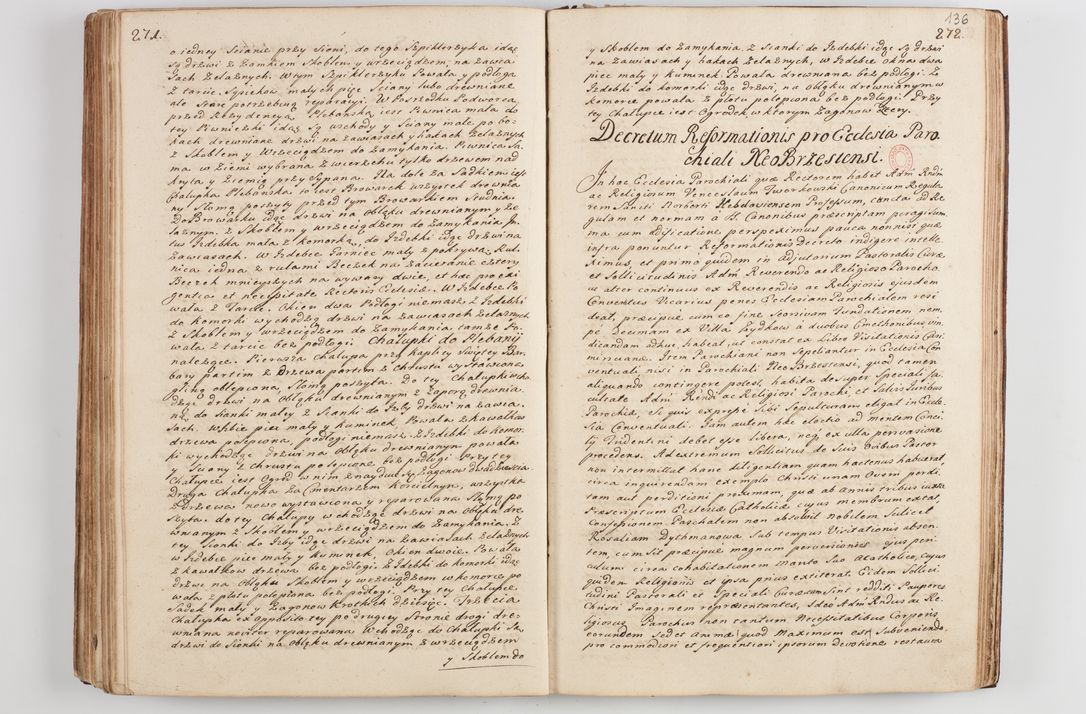 271.
o iedney Scianie przy Sieni, do tego Szpiklerzyka idąc
są drzwi z Zamkiem Skoblem y wrzeciądzem, na zawia
sach Zelaznych. W tym Szpiklerzyku Powała y podłoga
z tarcic. Sąsiekow małych pięc Sciany lubo drewniane
ale Stare potrzebuią reparacyi. W Posrzodku Podworca
przed Rezydencyą Plebańską iest Piwnica mała do
tey Piwniczki idąc są wschody y Sciany małe po bo:
kach drewniane drzwi na zawiasach y hakach Zelaznych
z Skoblem y Wrzeciądzem do Zamykania. Piwnica Sa:
ma w Ziemi wybrana z wierzchu tylko drzewem nad
kryta y Ziemią przysypana. Na dole za Sadkiem iest
Chałupka Plebańska to iest Browarek wszytek drewnia
ny Słomą poszyty przed tym Browarkiem Studnia.
Do Browarku idąc drzwi na obłąku drewnianym y Ze
laznym. z Skoblem y wrzeciądzem do Zamykania Jn
tus Izdebka mała z komorką, do Izdebki idąc drzwi na
zawiasach. W Izdebce Garniec mały z pokrywą, Rur
nica iedna z rurami Beczek na zacieranie cztery
Beczek mnieyszych na wywary dwie, et hac pro exi
gentia et necessitate Rectoris Ecclesiæ. W Izdebce Po
wała z Tarcic. Okien dwa Podłogi niemasz z Izdebki
do komorki wychodzą drzwi na zawiasach Zelaznych
z Skoblem y wrzeciądzem do Zamykania tamze Po
wała z tarcic bez podłogi Chałupki do Plebanij
należące. Pierwsza Chałupa przy kaplicy Swiętey Bar
bary partim z Drzewa partim z Chrustu wystawiona
gliną oblepiona, Słomą poszyta. Do tey Chałupki wcho
dząc drzwi na obłąku drewnianym z Zaporą drewnia
ną do Sianki małey z Sianki do Izby drzwi na zawia
sach. W Izbie piec mały y kuminek, Powała z kawałkow
drzewa polepiona, podłogi niemasz. z Izdebki do komor
ki wychodząc drzwi na obłąku drewnianym powała
y Sciany z chrustu polepione bez podłogi Przy tey
Chałupce iest Ogrod w nim znayduie się Zagonow dwadziescia.
Druga Chałupka za Cmentarzem koscielnym, wszystka
z drzewa nowo wystawiona y reparowana Słomą po
szyta. do tey Chałupy wchodząc drzwi na obłąku dre
wnianym z Skoblem y wrzeciądzem do Zamykania. z
tey Sianki do Izby idąc drzwi na zawiasach Zelaznych
w Izdebce piec mały y kuminek, Okien dwoie. Powała
z kawałkow drzewa bez podłogi. z Izdebki do komorki idąc
drzwi na obłąku Skoblem y wrzeciądzem w komorce po
wała z płatu polepiona bez podłogi. Przy tey Chałupce
Sadek mały y Zagonow krotkich dziesięc. Trzecia
Chałupka ex Opposito tey po drugiey Stronie drogi dre
wniana noviter reparowana Wchodząc do Chałupki Są
drzwi do Sionki na Obłąku drewnianym z wrzeciądzem
y Skoblem do
136
272.
y Skoblem do Zamykania, z Sianki do Izdebki idąc Są drzwi
na zawiasach y hakach Zelaznych, w Izdebce okna dwa
piec mały y kuminek. Powała drewniana bez podłogi. Ze
Izdebki do komorki idąc drzwi, na obłąku drewnianym w
komorce powała z płatu polepiona bez podłogi. Przy
tey Chałupce iest Ogrodek w ktorym Zagonow
Decretum Reformationis pro Ecclesia Paro
chiali NeoBrzestensi.
In hac Ecclesia Parochiali quæ Rectorem habet Adm Rndum
ac Religiosum Venceslaum Tworkowski Canonicum Regula
rem Sancti Norberti Hebdoviensem Professum, cuncta ad Re
gulam et normam à S. Canonibus præscriptam peragi sum,
ma cum ædificatione perspeximus pauca nonnisi quæ
infra ponuntur Reformationis Decreto indigere intelle
ximus, et primo quidem in adjutorium Pastoralis Curæ
et Sollicitudinis Adm Reverendo ac Religioso Parocho
ut alter continuus ex Reverendis ac Religiosis ejusdem
Conventus Vicarius penes Ecclesiam Parochialem resi
deat, præcipuè cum eo fine Seorsivam Fundationem nem,
pè decimam ex Villa Rydkow à duobus Cmethonibus vin
dicandam adhuc habeat, ut constat ex Libro Visitationis Casi
miriscianæ. Item Parochiani non Sepeliantur in Ecclesia Con
ventuali, nisi in Parochiali NeoBrzestensi, quod tamen
aliquando contingere potest, habita desuper Speciali fa
cultate Adm Rndi ac Religiosi Parochi, et Salvis Juribus
Parochiæ, si quis expresse Sibi Sepulturam eligat in Eccle
sia Conventuali. Jam autem hæc electio ad mentem Conci
lij Tridentini debet esse libera, neq ex ulla pervasione
procedens. Ad extremum Sollicitus de Suis Ovibus Pastor
non intermittat hanc diligentiam quam hactenus habuerat
circa inquirendam exemplo Christi unam Ovem perdi
tam aut perditioni proximam, quæ ab Annis tribus iuxta
Præscriptum Ecclesiæ Catholicæ cujus membrum extat,
Confessionem Paschalem non absolvit Nobilem Scilicet
Rosaliam Dythmanowa Sub tempus Visitationis absen
tem, cum Sit præcipuè magnum perversionis ejus peri
culum circa cohabitationem Marito Suo Acatholico, cujus
quidem Religionis et ipsa prius extiterat. Eidem Sollici
tudini Pastorali et Speciali Curæ cum Sint redditi Pauperes
Christi Imaginem repræsentantes, Ideo Adm Rndus ac Re
ligiosus Parochus non tantum Necessitatibus Corporis
eorundem Sed et Animæ quod Maximum est, Subveniendo
pro commodiori et frequentiori ipsorum Devotione restaura